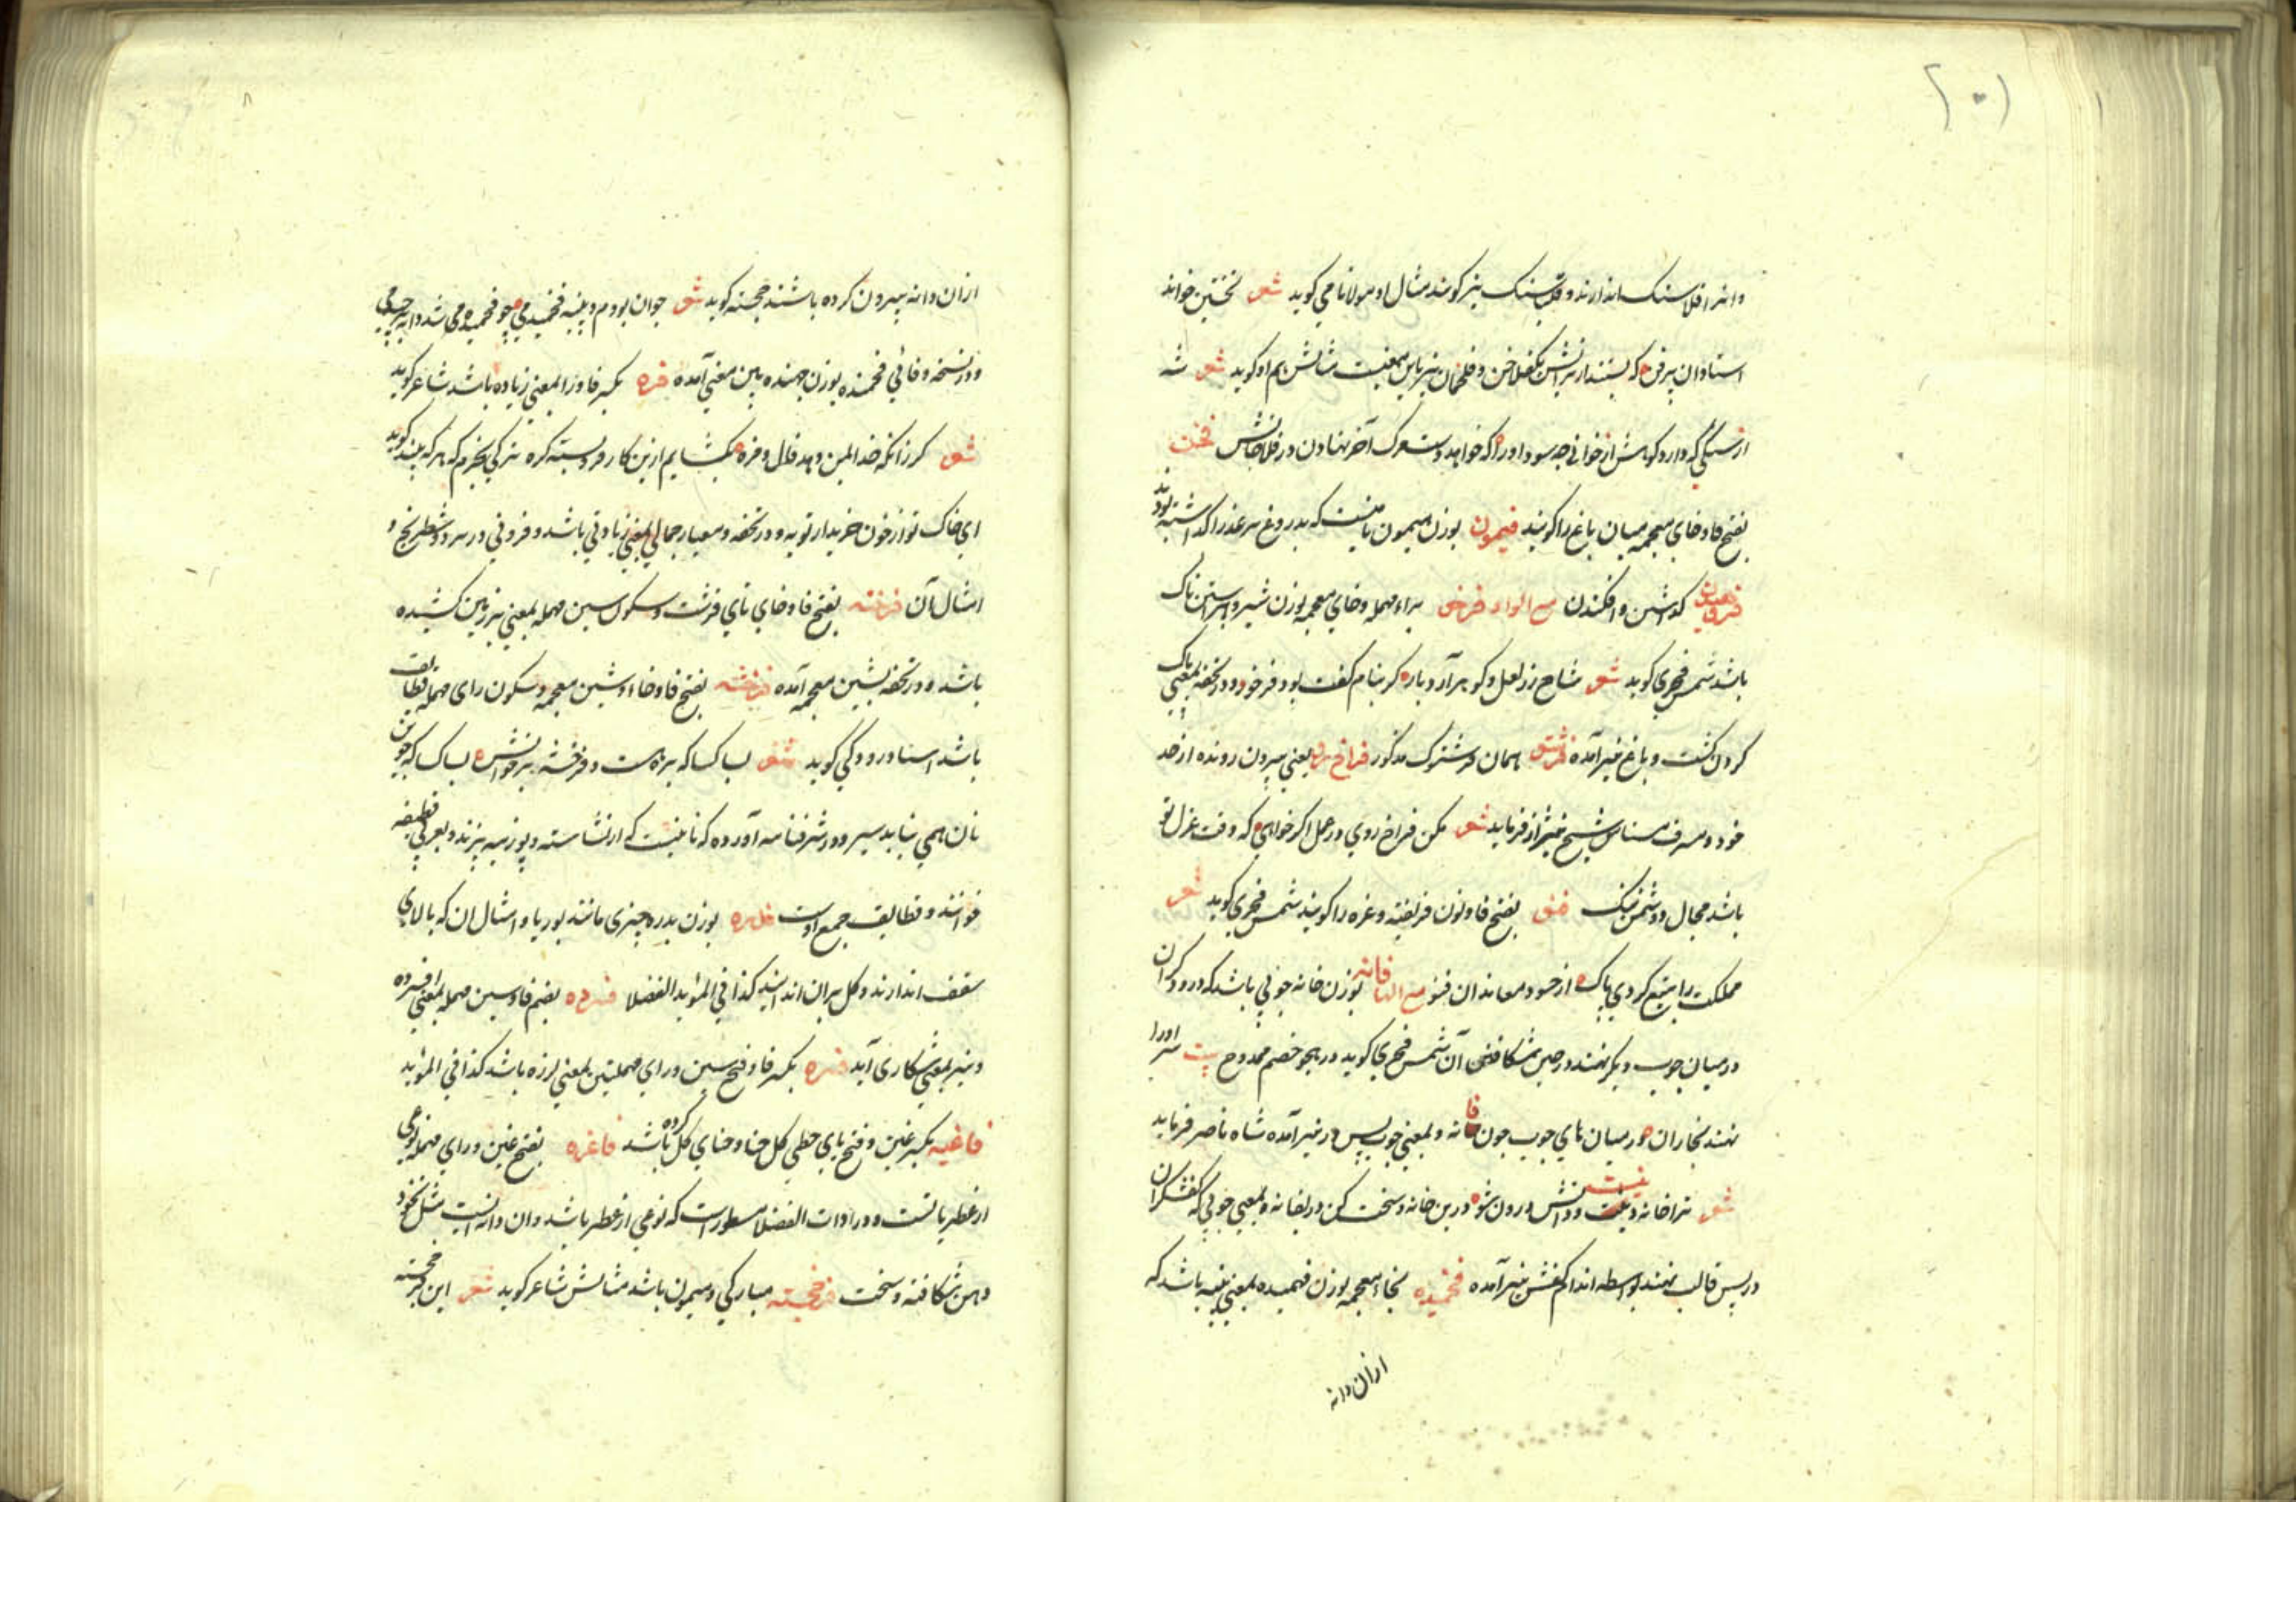 ۲۰۱
وانرا فلاسنک اندازند و قلبسنک نیز کویند مثال او مولانا می کوید شعر نخستین خواند
استادان پرفن که بستندارنزانش بفلاخن و فلخمان نیز باین معنیست مثالش هم او کوید شعر شه
ارسنگی که دارد کوهش از خوانی چه سود او را که خواهد دست مرک آخر نهادن در فلاخانش فخن
بفتح فا و خای معجمه میان باغ را کویند فیمون بوزن میمون نامیست که بدروغ سر عذرا کداشته بود
کداشتن و افکندن مع الواو فرخو براء مهمله و خای معجمه بوزن شیرو پیراستن تاک
باشد شمس فخری کوید شعر شاخ زر لعل و کوهر آرد بار کر بنام کفت بود فرخو و در تحفه بمعنی پاک
کردن کشت و باغ نیز آمده همان فرشتوک مذکور فراخ رو یعنی بیرون رونده از حد
خود و مسرف مثالش شیخ شیراز فرماید شعر مکن فراخ روی در عمل اکر خواهی که وقت عزل تو
باشد مجال دشمن تنک فنو بفتح فا و نون فریفته و غره را کویند شمس فخری کوید شعر
مملکت را بتیغ کردی پاک از حسود معاندان فنو مع الهاء فانه بوزن خانه چوبی باشد که درودکران
در میان چوب دیکر نهند در حین شکافتن آن شمس فخری کوید در هجو خصم ممدوح بیت
نهند نجاران در میان های چوب چون فانه و بمعنی چوب پس در نیز آمده شاه ناصر فرماید
شعر ترا خانه دینست و دانش درون شو درین خانه و سخت کن در بفانه و بمعنی چوبی که کفشکران
در پس قالب نهند بواسطه اندام کفش نیز آمده فخمیده بخاء معجمه بوزن فهمیده بمعنی پنبه باشد که
ازان دانه
ازان دانه بیرون کرده باشند حجسته کوید شعر جوان بودم و پنبه فخمیدمی چو فخمیده می شد دانه برچیدمی
و در نسخه وفائی فخمنده بوزن جهنده باین معنی آمده فره بکسر فا و را بمعنی زیاده باشد شاعر کوید
شعر کرزانکه خدا لمن دهد فال و فره بکشایم ازین کار فرو بسته کره نیز کی بخرم که هر که بیند کوید
ای خاک تو از خون خریدار تو به و در تحفه و معیار جمالی بمعنی زیادتی باشد و فزونی در سر دو شطرنج و
امثال آن فرخته بفتح فا و خای تای قرشت و سکون سین مهمله بمعنی بر زمین کشیده
باشد و در تحفه بشین معجمه آمده فرخشه بفتح فا و خاء و شین معجمه و سکون رای مهمله قطایف
باشد استاد رودکی کوید شعر بسا کسا که بره است و فرخشه بر خوانش بسا کسا که جوین
نان همی نیابد سیر و در شرفنامه آورده که نانیست که از نشاسته و لوزینه پزند و بعربی قطیفه
خوانند و قطایف جمع اوست بوزن بدره چیزی مانند بوریا و امثال آن که بالای
سقف اندازند و کل بران اندایند کذا فی المؤید الفضلا فسرده بضم فا و سین مهمله بمعنی افسرده
و نیز بمعنی شکاری آید فسره بکسر فا و فتح سین و رای مهملتین بمعنی لرزه باشد کذا فی المؤید
فاغیه بکسر غین و فتح یای حطی کل حنا و حنای کل کرده باشد فاغره بفتح غین و رای مهمله نوعی
از عطریاتست و در ادات الفضلا مسطورست که نوعی از عطر باشد و ان دانه ایست مثل نخود
دهن شکافته و سخت فرخجسته مبارکی و میمون باشد مثالش شاعر کوید شعر این